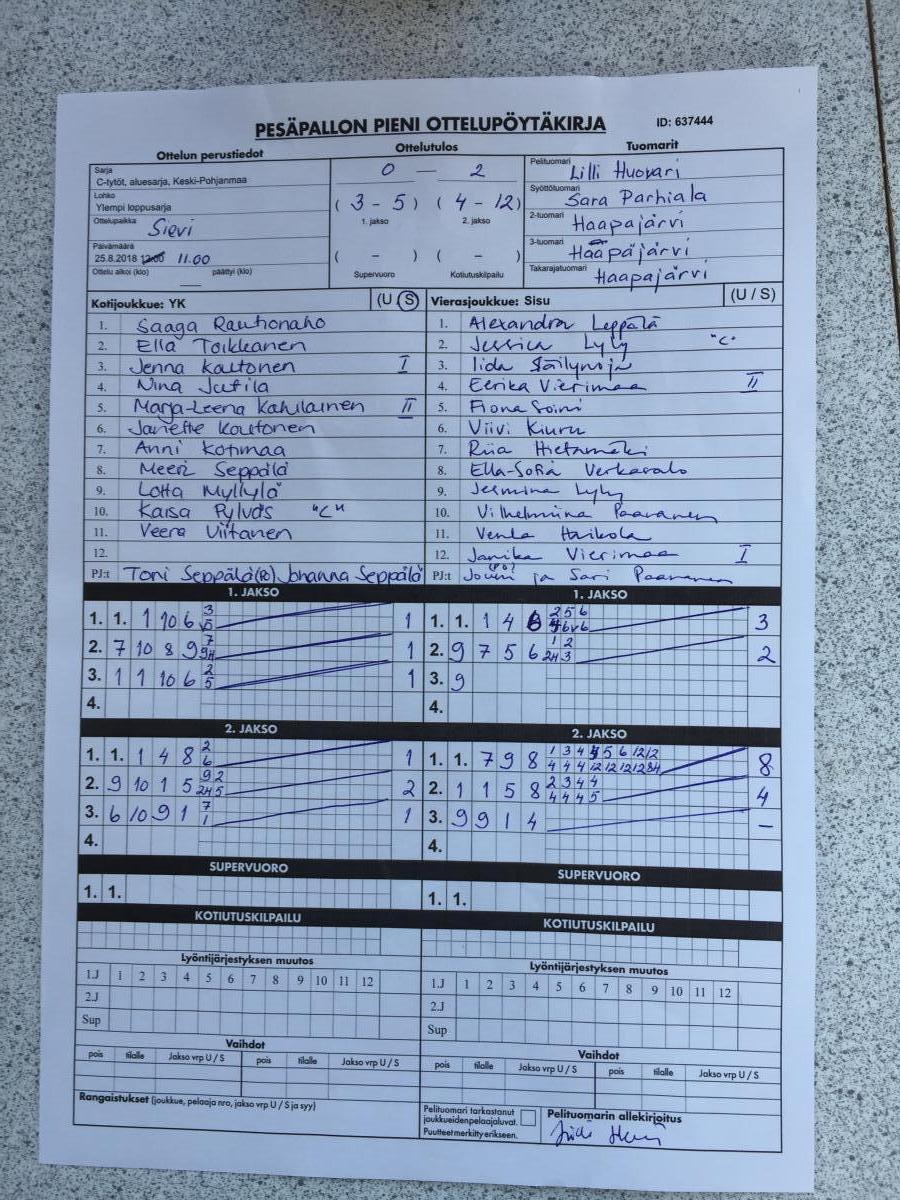 PESÄPALLON PIENI OTTELUPÖYTÄKIRJA
ID: 637444
Ottelun perustiedot
Sarja
C-tytöt, aluesarja, Keski-Pohjanmaa
Lohko
Ylempi loppusarja
Ottelupaikka Sievi
Päivämäärä
25.8.2018 12.00 11.00
Ottelu alkoi (klo) päättyi (klo)
Ottelutulos
0 — 2
( 3 - 5 ) ( 4 - 12 )
1. jakso 2. jakso
( - ) ( - )
Supervuoro Kotiutuskilpailu
Tuomarit
Pelituomari Lilli Huovari
Syöttötuomari Sara Parhiala
2-tuomari Haapajärvi
3-tuomari Haapajärvi
Takarajatuomari Haapajärvi
Kotijoukkue: YK (U S)
1. Saaga Rautionaho
2. Ella Toikkanen
3. Jenna Kautonen I
4. Nina Jutila
5. Marja-Leena Kahilainen II
6. Janette Koutonen
7. Anni Kotimaa
8. Meeri Seppälä
9. Lotta Myllylä
10. Kaisa Pylväs "C"
11. Veera Viitanen
12.
PJ:t Toni Seppälä Johanna Seppälä
Vierasjoukkue: Sisu (U / S)
1. Alexandra Leppälä
2. Jessica Lyly "C"
3. Iida Säilynoja
4. Eerika Vierimaa II
5. Fiona Soini
6. Viivi Kiuru
7. Riia Hietamäki
8. Ella-Sofia Verkasalo
9. Jesmina Lyly
10. Vilhelmiina Paavanen
11. Venla Haikola
12. Janika Vierimaa I
PJ:t Jouni ja Sari Paavanen
1. JAKSO
1. 1. 1 10 6 3 5 1
2. 7 10 8 9 7 1
3. 1 1 10 6 2 5 1
4.
1. JAKSO
1. 1. 1 4 6 2 5 6 3
2. 9 7 5 6 1 2 3 2
3. 9
4.
2. JAKSO
1. 1. 1 4 8 2 6 1
2. 9 10 1 5 9 2 2
3. 6 10 9 1 7 1 1
4.
2. JAKSO
1. 1. 7 9 8 1 3 4 5 6 12 12 8
2. 1 1 5 8 2 3 4 4 4 4 4 5 4
3. 9 9 1 4 –
4.
SUPERVUORO
1. 1.
SUPERVUORO
1. 1.
KOTIUTUSKILPAILU
KOTIUTUSKILPAILU
Lyöntijärjestyksen muutos
1.J 1 2 3 4 5 6 7 8 9 10 11 12
2.J
Sup
Lyöntijärjestyksen muutos
1.J 1 2 3 4 5 6 7 8 9 10 11 12
2.J
Sup
Vaihdot
pois tilalle Jakso vrp U / S pois tilalle Jakso vrp U / S
Vaihdot
pois tilalle Jakso vrp U / S pois tilalle Jakso vrp U / S
Rangaistukset (joukkue, pelaaja nro, jakso vrp U / S ja syy)
Pelituomari tarkastanut
joukkueidenpelaajaluvat.
Puutteet merkitty erikseen.
Pelituomarin allekirjoitus